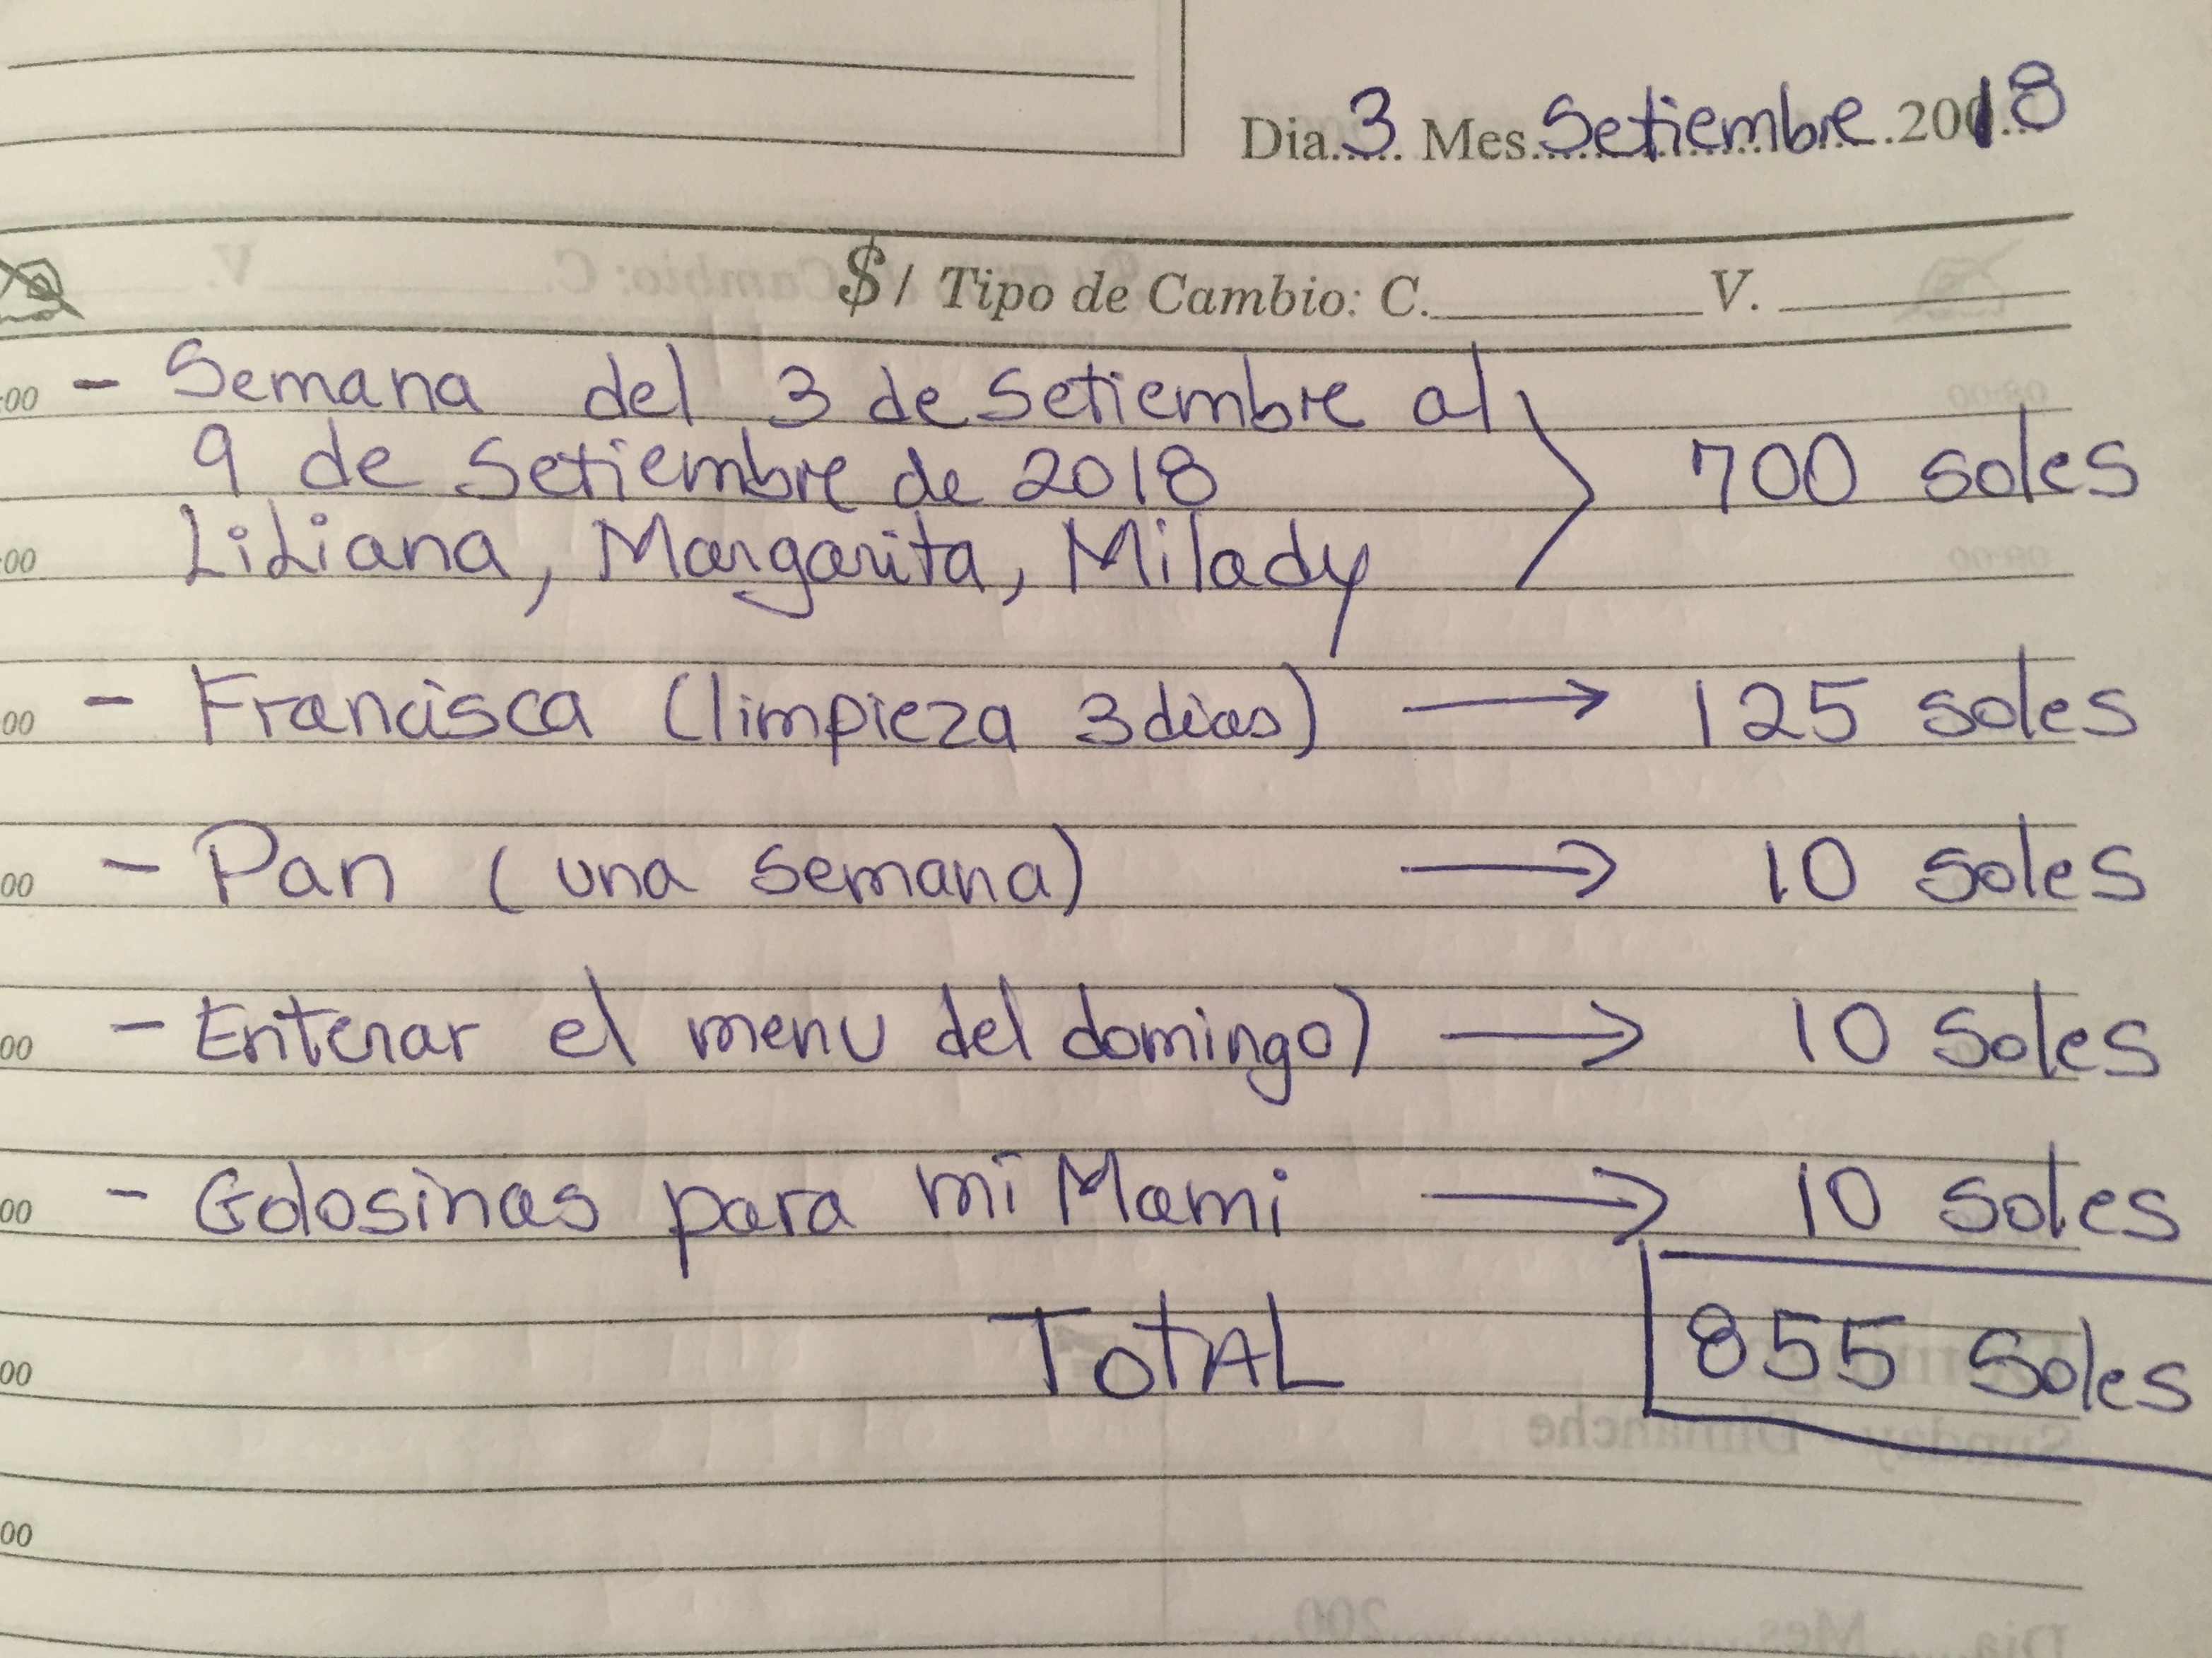 Dia..3.. Mes.Setiembre.20018
$/ Tipo de Cambio: C.________ V. ________
00 - Semana del 3 de Setiembre al
9 de Setiembre de 2018 700 soles
00 Liliana, Margarita, Milady
00 - Francisca (limpieza 3 dias) → 125 soles
00 - Pan (una semana) → 10 soles
00 - Enterar el menu del domingo) → 10 Soles
00 - Golosinas para mi Mami → 10 Soles
00 TOTAL 855 Soles
00